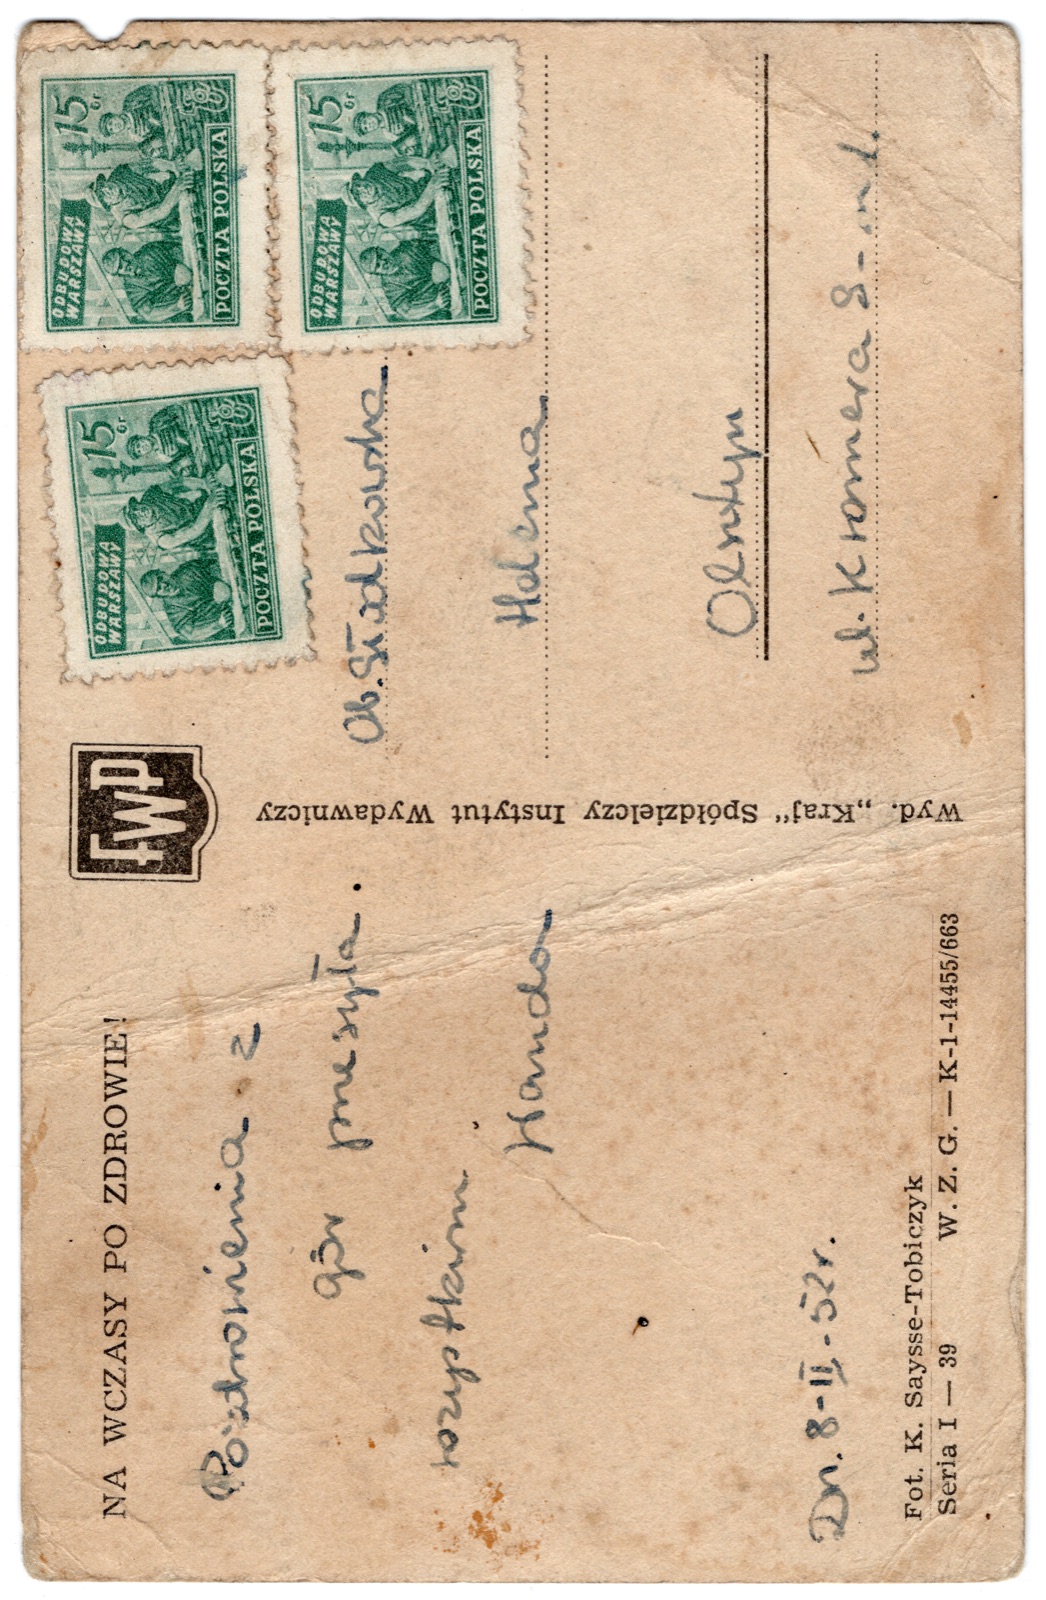 NA WCZASY PO ZDROWIE!
FWP
Pozdrowienia z
gór przesyła.
wszystkim
Wanda
Dn. 8-II-52r.
Fot. K. Saysse-Tobiczyk
Seria I — 39 W. Z. G. — K-1-14455/663
Wyd. „Kraj" Spółdzielczy Instytut Wydawniczy
15 Gr
ODBUDOWA
WARSZAWY
POCZTA POLSKA
15 Gr
ODBUDOWA
WARSZAWY
POCZTA POLSKA
15 Gr
ODBUDOWA
WARSZAWY
POCZTA POLSKA
Ob.
Helena
Olsztyn
ul. Kromera 9-